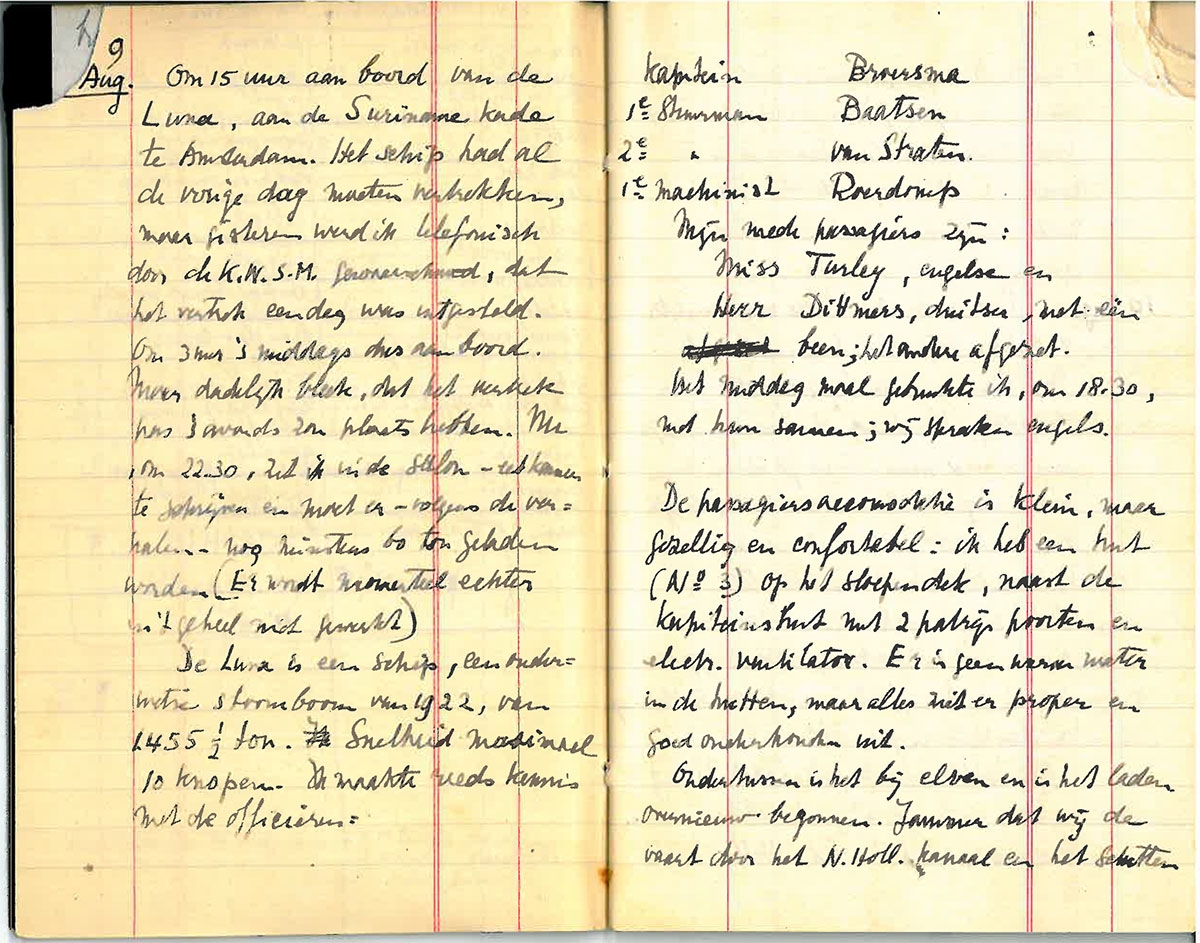 9
Aug. Om 15 uur aan boord van de
Luna, aan de Suriname kade
te Amsterdam. Het schip had al
de vorige dag moeten vertrekken,
maar gisteren werd ik telefonisch
door de K.N.S.M. gewaarschuwd, dat
het vertrek een dag was uitgesteld.
Om 3 uur 's middags dus aan boord.
Maar dadelijk bleek, dat het vertrek
pas 's avonds zou plaats hebben. Nu
, om 22.30, zit ik in de salon
te schrijven en moet er – volgens de ver=
halen – nog minstens 60 ton geladen
worden (Er wordt momenteel echter
in 't geheel niet gewerkt)
De Luna is een schip, een onder=
wetse stoomboom van 1922, van
1.455 ½ ton. Snelheid maximaal
10 knopen. Ik maakte reeds kennis
met de officieren=
Kapitein Broersma
1e Stuurman Baatsen
2e " van Straten.
1e machinist Roerdomp
Mijn mede passagiers zijn :
Miss Turley, engelse en
Herr Dittmers, duitser, met één
been; het andere afgezet.
Het middag maal gebruikte ik, om 18.30,
met hun samen; wij spraken engels.
De passagiersaccomodatie is klein, maar
gezellig en confortabel : ik heb een hut
(No 3) op het sloependek, naast de
kapiteinshut met 2 patrijspoorten en
electr. ventilator. Er is geen warm water
in de hutten, maar alles ziet er proper en
goed onderhouden uit.
Ondertussen is het bij elven en is het laden
overnieuw begonnen. Jammer dat wij de
vaart door het N. Holl. kanaal en het Schutten